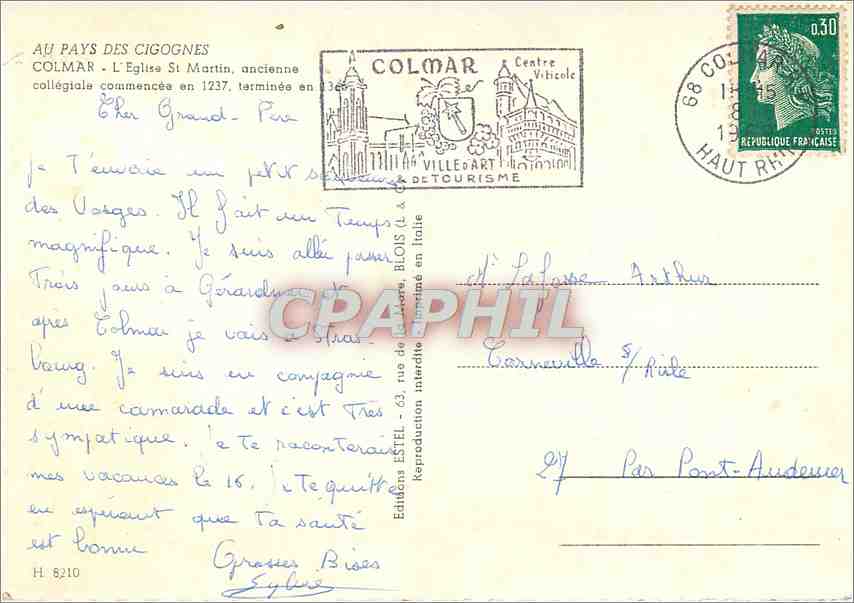 AU PAYS DES CIGOGNES
COLMAR - L'Eglise St Martin, ancienne
collégiale commencée en 1237, terminée en
Cher Grand-Père
Je T'envoie un petit
des Vosges. Il fait un Temps
magnifique. Je suis allée passer
Trois jours à Gérardmer et
après Colmar je vais à Stras-
bourg. Je suis en compagnie
d'une camarade et c'est Très
sympatique. Je te raconterais
mes vacances le 16. Je te quitte
en espérant que Ta santé
est bonne
Grosses Bises
Sylvie
H. 8210
COLMAR
Centre
Viticole
VILLE D'ART
& DE TOURISME
68 COLMAR
HAUT RHIN
0,30
POSTES
REPUBLIQUE FRANÇAISE
Editions ESTEL - 63, rue de la Mare, BLOIS (L. & C.)
Reproduction interdite - Imprimé en Italie
CPAPHIL
Mr Lafosse Arthur
Corneville s/Risle
27 Par Pont-Audemer